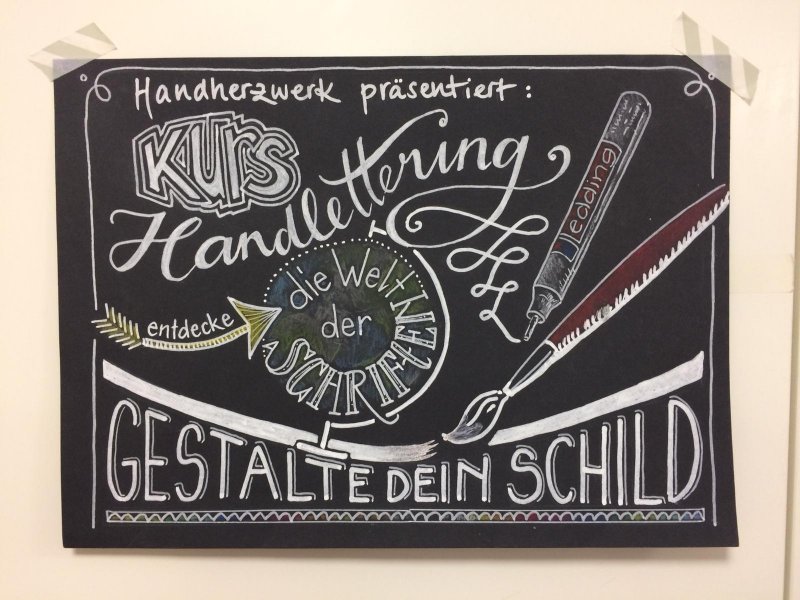 Handherzwerk präsentiert:
KURS
Handlettering
edding
entdecke
die Welt
der
SCHRIFTEN
GESTALTE DEIN SCHILD